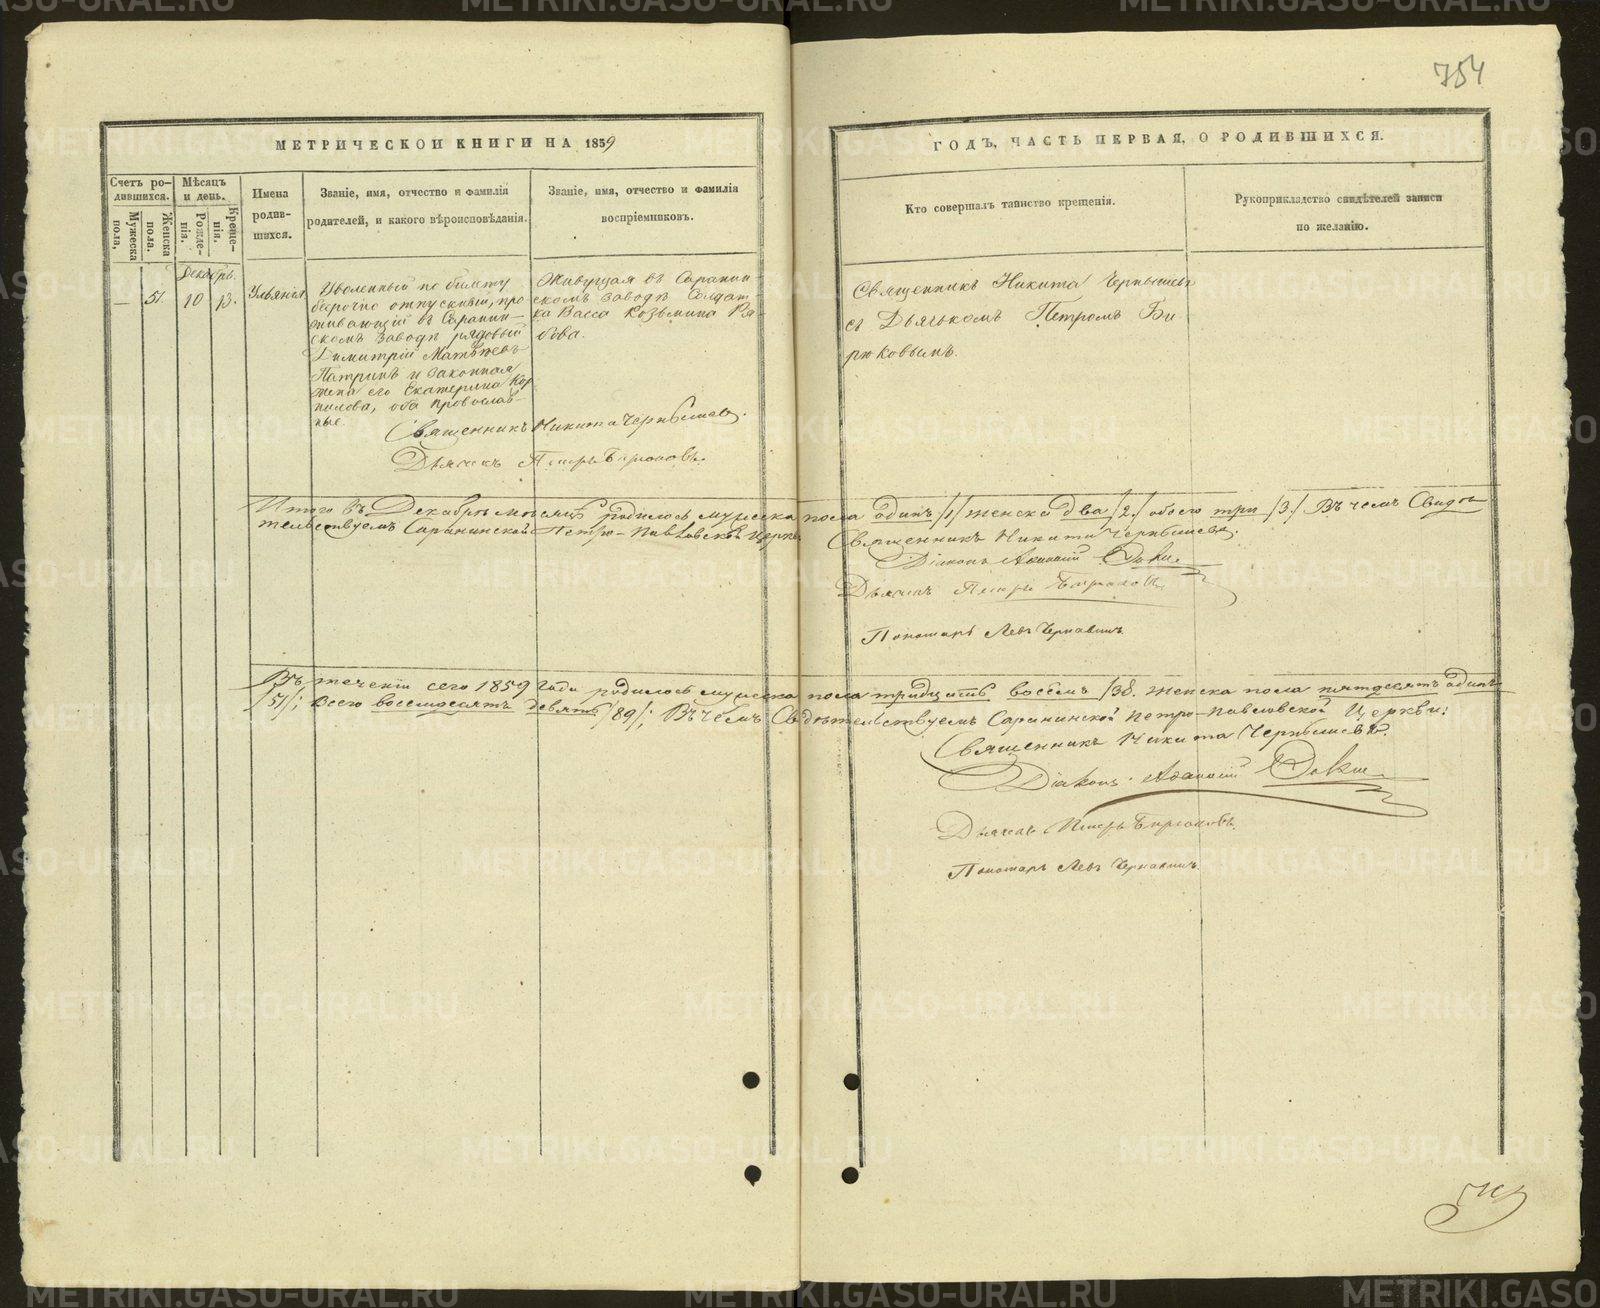 754
МЕТРИЧЕСКОИ КНИГИ НА 1859
ГОДЪ, ЧАСТЬ ПЕРВАЯ, О РОДИВШИХСЯ.
Счетъ ро-
дившихся.
Мужеска пола,
Женска пола.
Мѣсяцъ
и день.
Рожде-
нія.
Креще-
нія.
Имена
родив-
шихся.
Званіе, имя, отчество и фамилія
родителей, и какого вѣроисповѣданія.
Званіе, имя, отчество и фамилія
воспріемниковъ.
Кто совершалъ таинство крещенія.
Рукоприкладство свидѣтелей записи
по желанію.
Декабрь.
— 51. 10 13.
Ульянія
Уволенный по билету
безрочно отпускный, про
живающій въ Саранин-
скомъ заводѣ рядовый
Димитрій Матѳѣевъ
Патринъ и законная
жена его Екатерина Кор
нилова, оба провослав-
ные.
Живущая въ Саранин-
скомъ заводѣ Солдат
ка Васса Козьмина Ря-
бова.
Священникъ Никита Чернышевъ
съ Дьячькомъ Петромъ Би
рюковымъ.
Священникъ Никита Чернышевъ.
Дьячекъ Петръ Бирюковъ.
Итого въ Декабрѣ мѣсяцѣ родилось мужеска пола одинъ /1/ женска два /2./ обоего три /3./ Въ чемъ Свидѣ
тельствуемъ Саранинской Петро-Павловской церкви Священникъ Никита Чернышевъ.
Діаконъ Аѳанасій
Дьячекъ Петръ Бирюковъ
Пономарь Левъ Чернавинъ
Въ теченіи сего 1859 года родилось мужеска пола тридцать восемь /38. женска пола пятдесятъ одинъ
/51/; Всего восемдесятъ девять /89/; Въ чемъ Свидѣтельствуемъ Саранинской Петро-Павловской Церкви:
Священникъ Никита Чернышевъ.
Діаконъ Аѳанасій
Дьячекъ Петръ Бирюковъ.
Пономарь Левъ Чернавинъ
METRIKI.GASO-URAL.RU